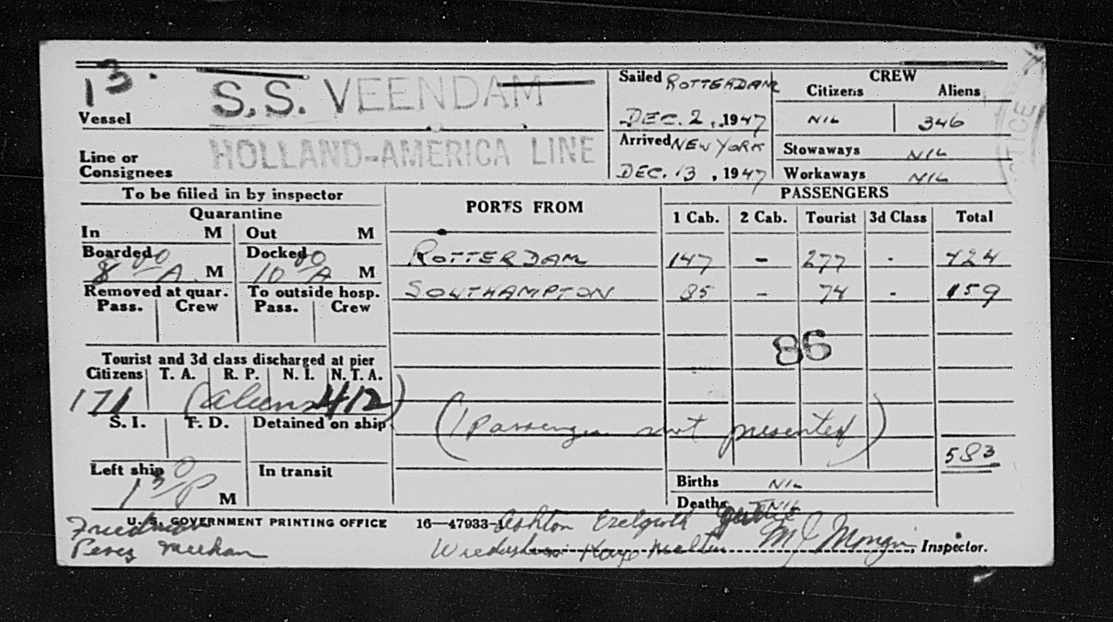 13.
S.S. VEENDAM
Vessel
HOLLAND-AMERICA LINE
Line or
Consignees
Sailed ROTTERDAM
DEC. 2, 1947
Arrived NEW YORK
DEC. 13, 1947
CREW
Citizens Aliens
NIL 346
Stowaways NIL
Workaways NIL
To be filled in by inspector
Quarantine
In M Out M
Boarded Docked
8 00 A. M 10 00 A M
Removed at quar. To outside hosp.
Pass. Crew Pass. Crew
Tourist and 3d class discharged at pier
Citizens T. A. R. P. N. I. N. T. A.
171 (Aliens 412)
S. I. T. D. Detained on ship
Left ship In transit
1 30 P M
PORTS FROM
PASSENGERS
1 Cab. 2 Cab. Tourist 3d Class Total
ROTTERDAM 147 - 277 - 424
SOUTHAMPTON 85 - 74 - 159
86
(1 Passenger not presented)
583
Births NIL
Deaths NIL
U. S. GOVERNMENT PRINTING OFFICE 16—47933-1
Friedman Ashton
Perez Meehan
Inspector.